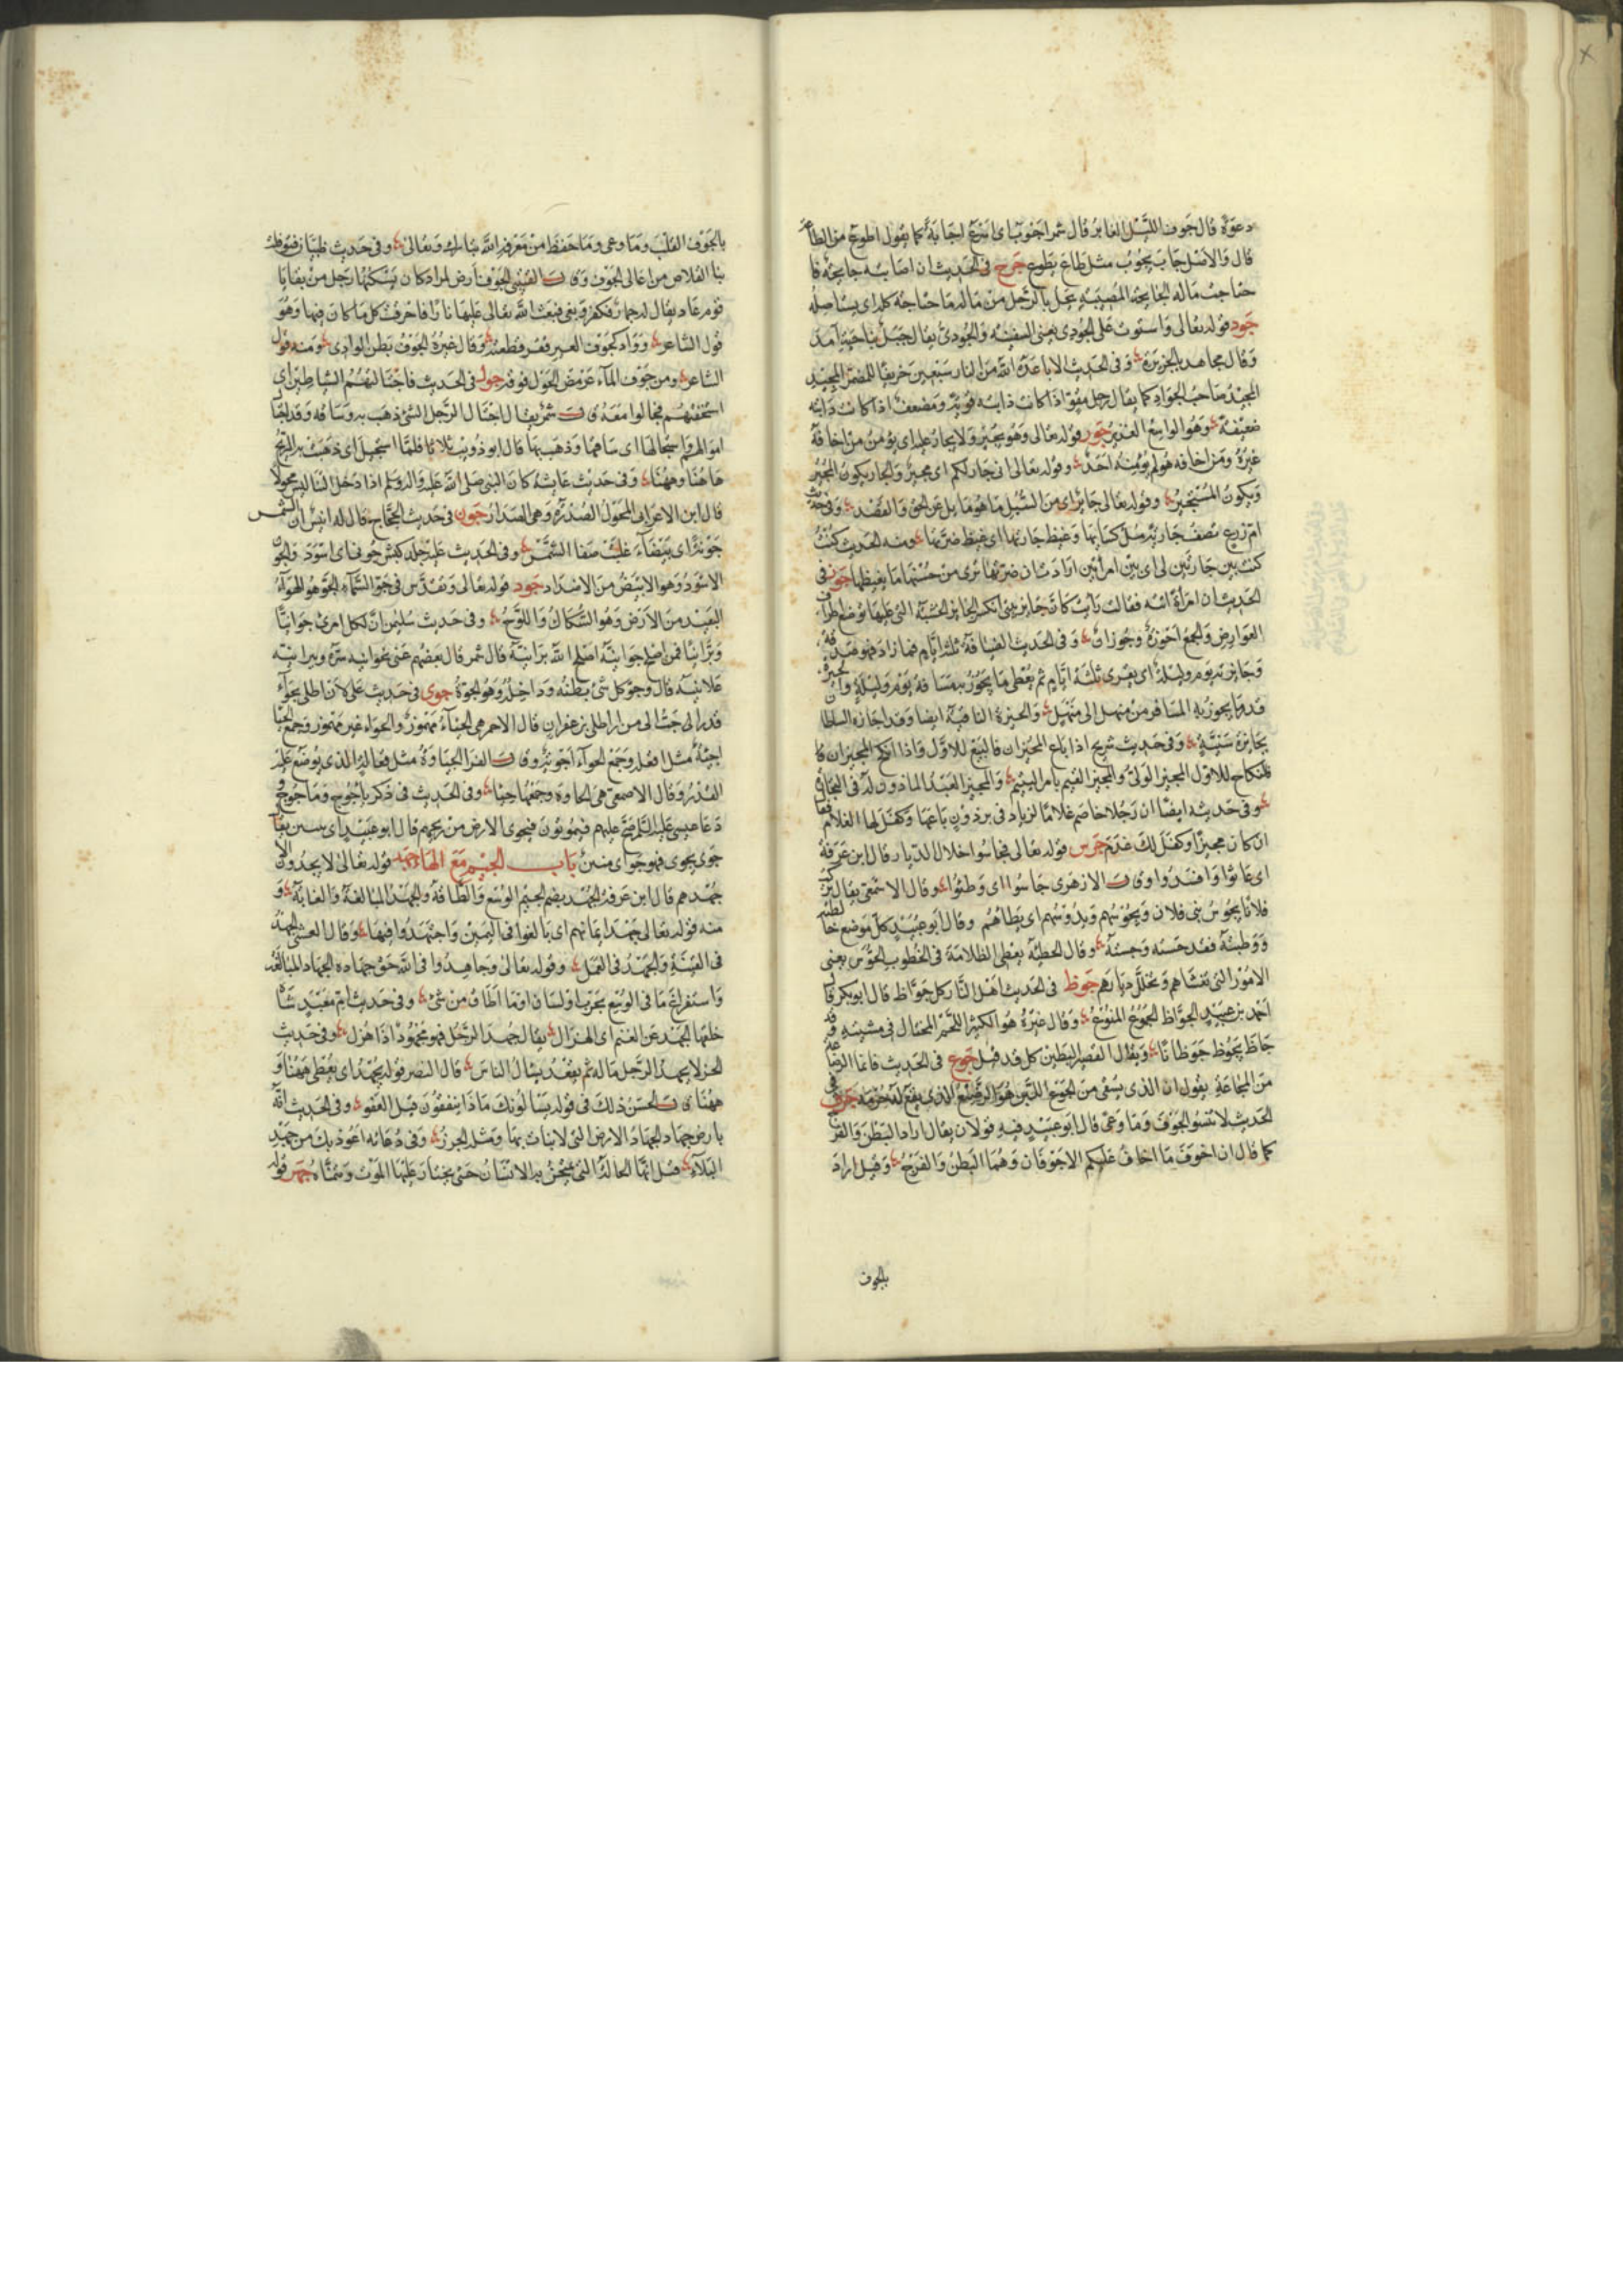 دعوة قال جوف الليل الغابر قال شمر اجوب اى اسرع اجابة كما يقول اطوع من الطاعة
قال والاصل جاب يجوب مثل طاع يطوع جوح فى الحديث ان اصابه جايحة فا
حتاجت ماله الجايحة المصيبة تحل بالرجل من ماله فاحتاجته كله اى يستاصله
جود قوله تعالى واستوت على الجودى يعنى السفينة والجودى يقال جبل بناحية آمد
وقال مجاهد بالجزيرة وفى الحديث الا باعده الله من النار سبعين خريفا للمضمر المجيد
المجيد صاحب الجواد كما يقال رجل مقو اذا كانت دابته قوية ومضعف اذا كانت دابته
ضعيفة وهو الواسع الغزير جور قوله تعالى وهو يجير ولا يجار عليه اى يؤمن من اخافه
غيره ومن اخافه هو لم يؤمنه احد وقوله تعالى انى جار لكم اى مجير والجار يكون المجير
ويكون المستجير وقوله تعالى جائر اى من السبل ما هو مايل عن الحق والقصد وفى حديث
ام زرع تصف جارية مل كسايها وغيظ جارتها اى غيظ ضرتها ومنه الحديث كنت
كنت بين جارتين لى اى بين امرأتين ارادت ان ضرتها ترى من حسنها ما يغيظها جوز فى
الحديث ان امرأة اتته فقالت رأيت كان جايز بيتى انكسر الجايز الخشبة التى عليها توضع اطراف
العوارض والجمع اجوزة وجوزان وفى الحديث الضيافة ثلثة ايام فما زاد فهو صدقة
وجايزته يوم وليلة اى يقرى ثلثة ايام ثم يعطى ما يجوز به مسافة يوم وليلة
قدر ما يجوز به المسافر من منهل الى منهل والجيزة الناحية ايضا وقد اجازه السلطان
بجايزة سنية وفى حديث شريح اذا باع المجيزان فالبيع للاول واذا انكح المجيزان فا
لنكاح للاول المجيز الولى والمجيز القيم بامر اليتيم والمجيز العبد الماذون له فى التجارة
وفى حديثه ايضا ان رجلا خاصم غلاما لزياد فى برذون باعها وكفل لها الغلام فقال
ان كان مجيزا وكفل لك غرم جوس قوله تعالى فجاسوا خلال الديار قال ابن عرفة
اى عاثوا وافسدوا وق‍ـ‍ـ‍ال الازهرى جاسوا اى وطئوا وقال الاصمعى يقال تركت
فلانا يجوس بنى فلان ويحوسهم ويدوسهم اى يطاهم وقال ابو عبيد كل موضع خالطته
ووطئته فقد حسته وجسته وقال الحطيئة يعطى الظلامة فى الخطوب الحوس يعنى
الامور التى تغشاهم وتخلل ديارهم جوظ فى الحديث اهل النار كل جواظ قال ابو بكر قال
احمد بن عبيد الجواظ الجموع المنوع وقال غيره هو الكثير اللحم المختال فى مشيته وقد
جاظ يجوظ جوظانا ويقال القصير البطين كل قد قيل جوع فى الحديث فانما الرضاعة
من المجاعة يقول ان الذى يسقى من الجوع اللبن هو الرضيع الذى يقع له حرمة جوف فى
الحديث لا تنسوا الجوف وما وعى قال ابو عبيد فيه قولان يقال اراد البطن والفرج
كما قال ان اخوف ما اخاف عليكم الاجوفان وهما البطن والفرج وقيل اراد
بالجوف
بالجوف القلب وما وعى وما حفظ من معرفة الله تبارك وتعالى وفى حديث ظبيان فتوقلت
بنا القلاص من اعالى الجوف وق‍ـ‍ال القتيبى الجوف ارض لمراد كان يسكنها رجل من بقايا
قوم عاد يقال له حمار فكفر وبنى فبعث الله تعالى عليها نارا فاحرقت كل ما كان فيها وهو
قول الشاعر وواد كجوف العير قفر قطعته وقال غيره الجوف بطن الوادى ومنه قول
الشاعر ومن جوف المآء عرمض الحول فوقه جول فى الحديث فاجتالتهم الشياطين اى
استخفتهم فجالوا معه ق‍ـ‍ال شمر يقال اجتال الرجل الشئ ذهب به وساقه وقد اجتال
اموالهم واستجالها اى ساقها وذهب بها قال ابو ذويب ثلاثا فلما استجيل اى ذهبت به الريح
هاهنا وههنا وفى حديث عايشة كان النبى صلى الله عليه واله وسلم اذا دخل الينا لبس مجولا
قال ابن الاعرابى المجول الصدرة وهى الصدار جون فى حديث الحجاج قال له انيس ان الشمس
جونة اى بيضآء غلبت صفا الشمس وفى الحديث عليه جلد كبش جونى اى اسود والجون
الاسود وهو الابيض من الاضداد جود قوله تعالى وتقدس فى جو السمآء الجو هو الهوآء
البعيد من الارض وهو السكاك واللوح وفى حديث سليمن ان لكل امرئ جوانيا
وبرانيا فمن اصلح جوانيه اصلح الله برانيه قال شمر قال بعضهم عنى بجوانيه سره وببرانيه
علانيته قال وجو كل شئ بطنه وداخله وهو الجوة جوى فى حديث على لان اطلى بجوآء
قدر احب الى من ان اطلى بزعفران قال الاحمر هى الجئآء مهموز والجواء غير مهموز وجمع الجئا
اجئة مثل افعلة وجمع الجوآء اجوية وق‍ـ‍ال الفرا الجياوة مثل فعالة الذى يوضع عليه
القدر وقال الاصمعى هى الجاوة وجمعها جيا وفى الحديث فى ذكر ياجوج وماجوج
دعا عيسى عليه السلم عليهم فيموتون فتجوى الارض من ريحهم قال ابو عبيد اى تنتن يقال
جوى يجوى فهو جو اى منتن باب الجيم مع الهاء جهد قوله تعالى لا يجدون الا
جهدهم قال ابن عرفة الجهد بضم الجيم الوسع والطاقة والجهد المبالغة والغاية و
منه قوله تعالى جهد ايمانهم اى بالغوا فى اليمين واجتهدوا فيها وقال الشعبى الجهد
فى القيتة والجهد فى العمل وقوله تعالى وجاهدوا فى الله حق جهاده الجهاد المبالغة
واستفراغ ما فى الوسع بحرب او لسان او ما اطاق من شئ وفى حديث ام معبد شاة
خلفها الجهد عن الغنم اى الهزال يقال جهد الرجل فهو مجهود اذا هزل وفى حديث
الحسن لا يجهد الرجل ماله ثم يقعد يسأل الناس قال النضر قوله يجهد اى يعطى ههنا و
ههنا ق‍ـ‍ال الحسن ذلك فى قوله يسألونك ماذا ينفقون قل العفو وفى الحديث انه
بارض جهاد الجهاد الارض التى لا نبات بها ومثله الجرز وفى دعائه اعوذ بك من جهد
البلآء قيل انها الحالة التى يمتحن بها الانسان حتى يختار عليها الموت ويتمناه جهر قوله